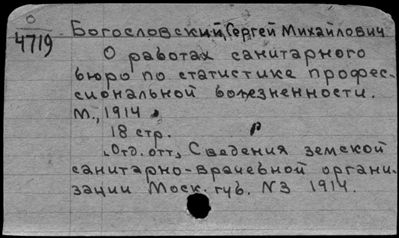 О
4719
Богословский, Сергей Михайлович
О работах санитарного
бюро по статистике профес-
сиональной болезненности.
М., 1914.
18 стр. р
„Отд. отт„ Сведения земской
санитарно-врачебной органи-
зации Моск. губ. N3 1914.